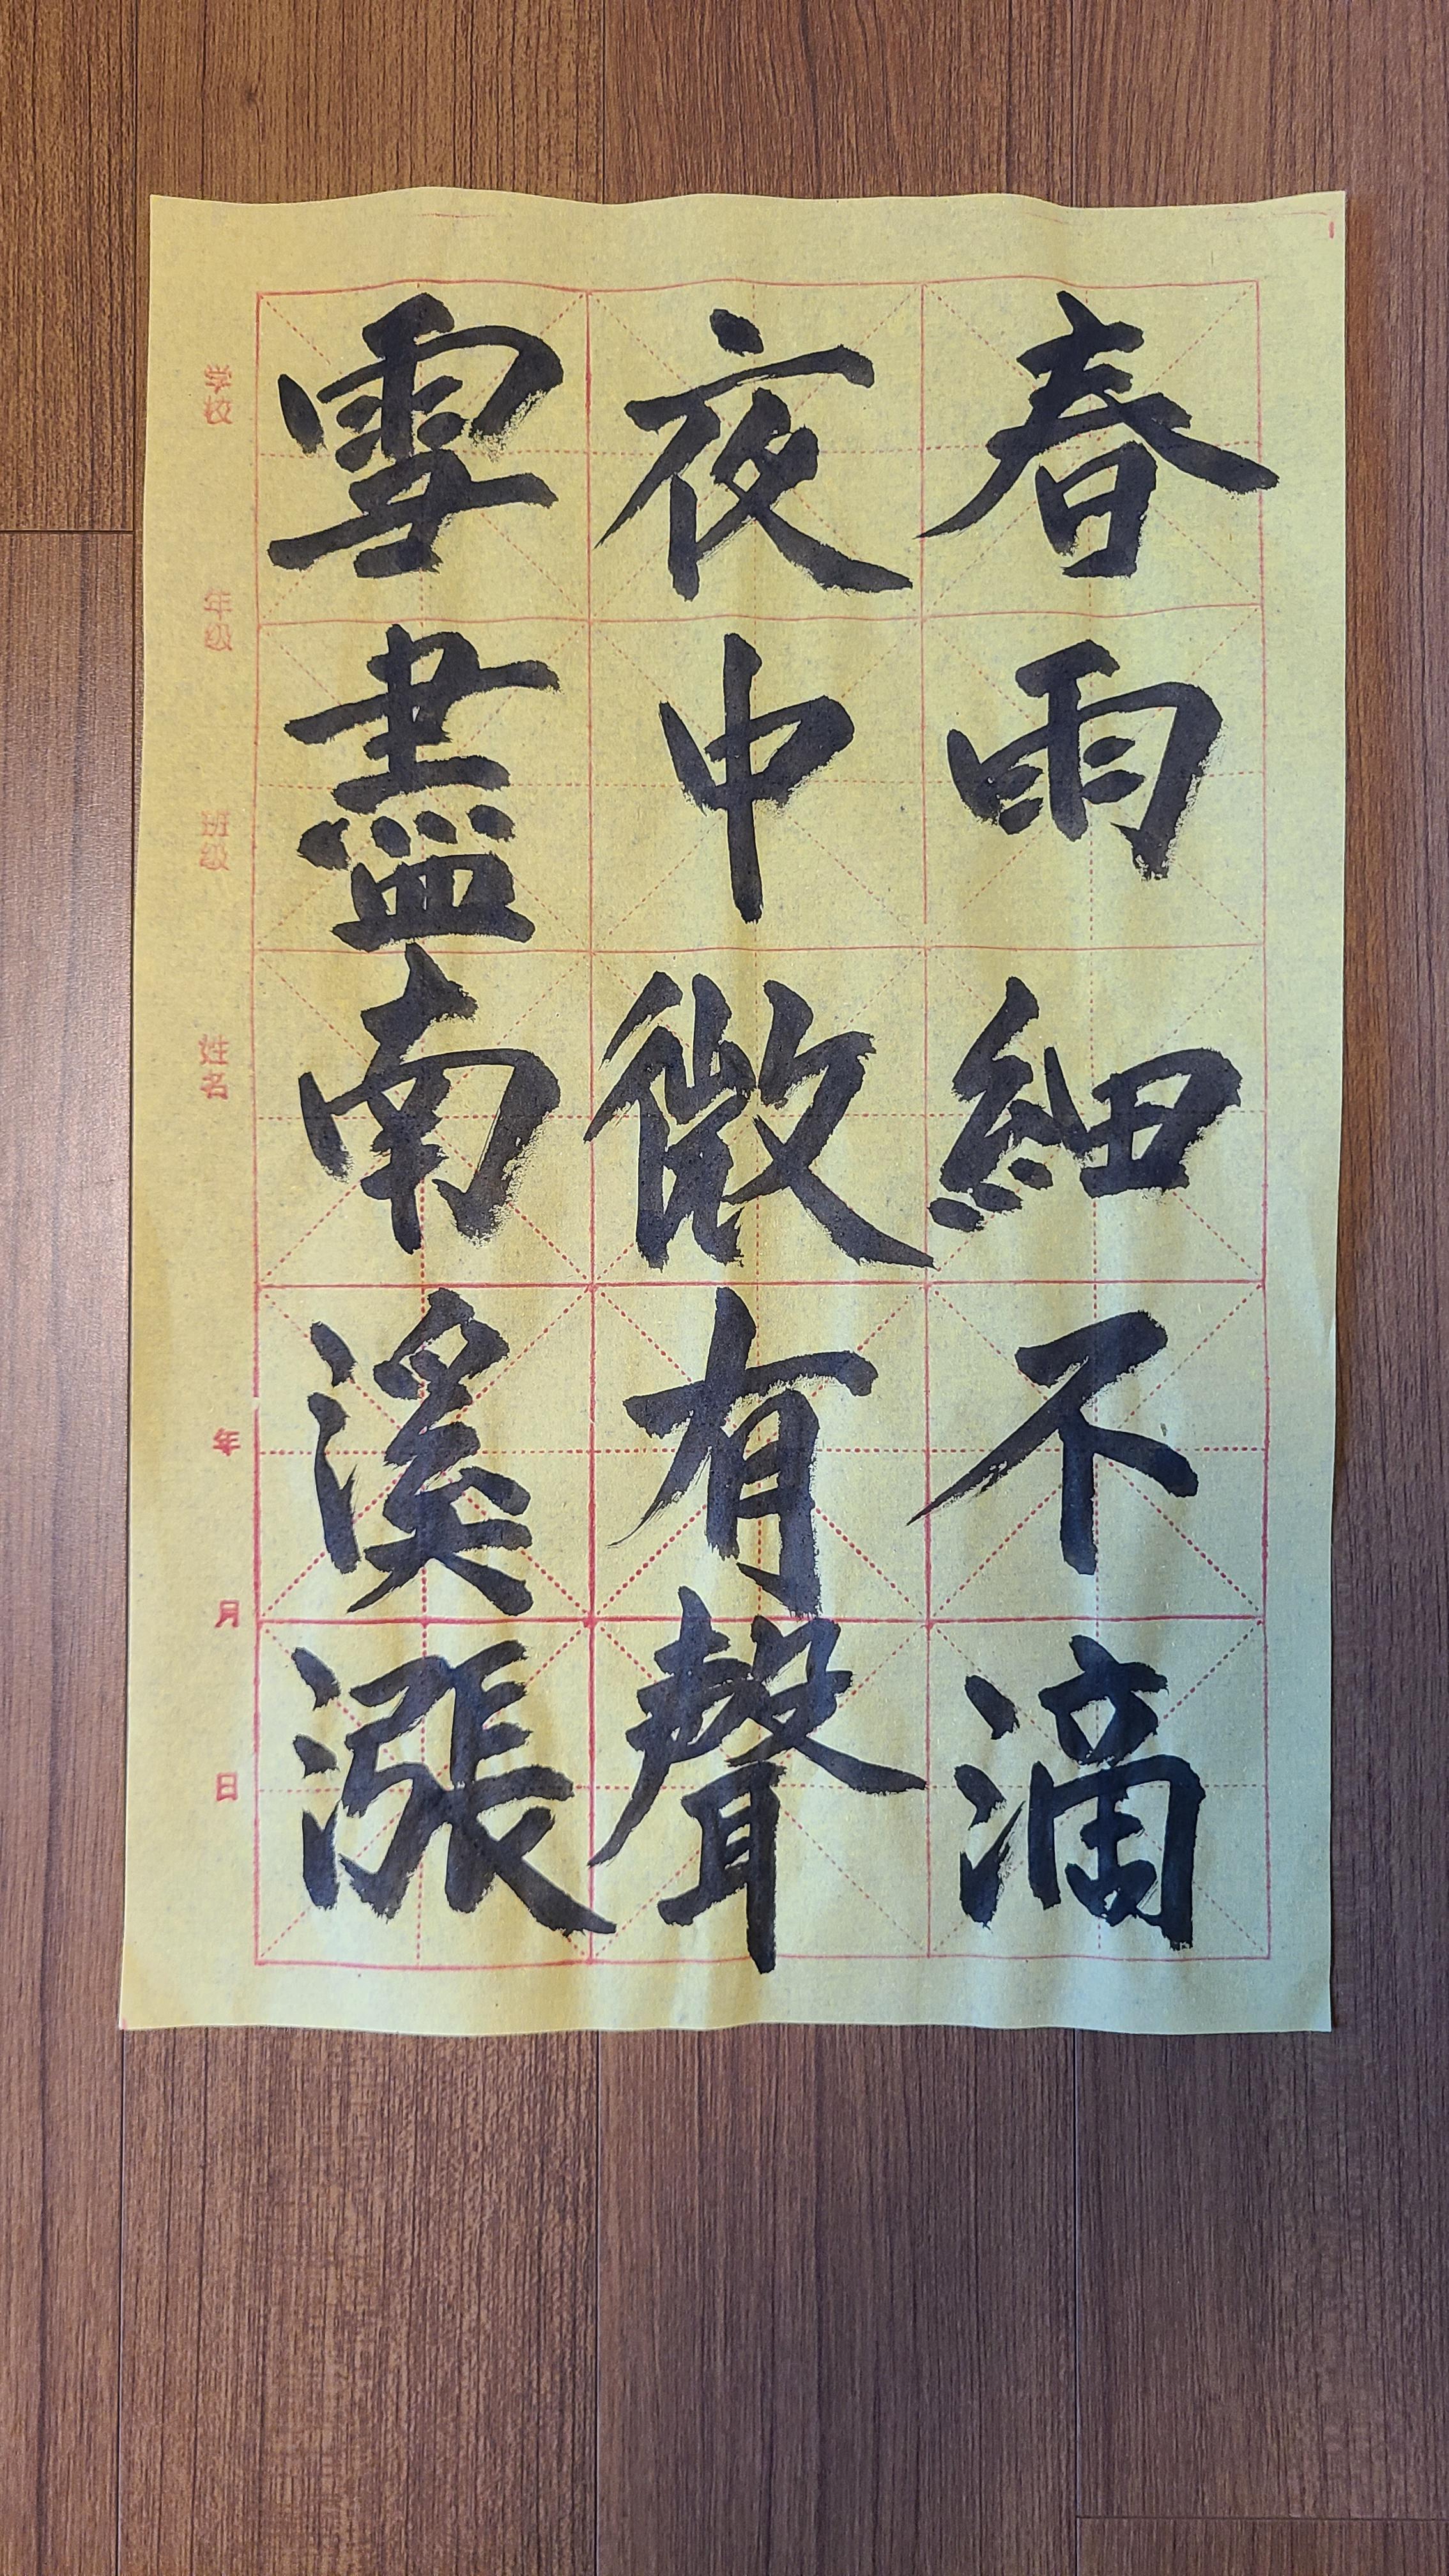 春雨細不滴
夜中微有聲
雪盡南溪漲
学校
年级
班级
姓名
年
月
日